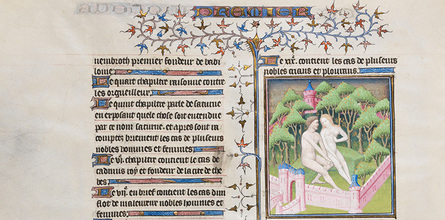 nembroth premier fondeur de babi
loine
Le quart chapitre raisonne contre
les orgueilleux
Le quint chapitre parle de saturne
en exposant quele chose soit entendue
par ce nom saturne. et apres sont ra
comptes briefment les cas de plusieurs
nobles hommes et femmes
Le vi.e chapitre contient le cas de
cadmus roy et fondeur de la cite de the
bes
Le vii.e en brief contient les cas dun
flot de maleureux nobles hommes et
femmes
Le xix.e contient les cas de plusieurs
nobles